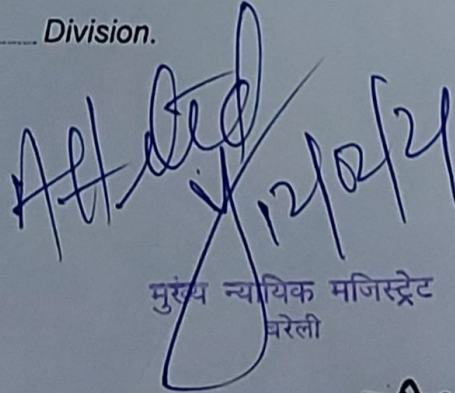 Division.
Attested
12/02/21
मुख्य न्यायिक मजिस्ट्रेट
बरेली